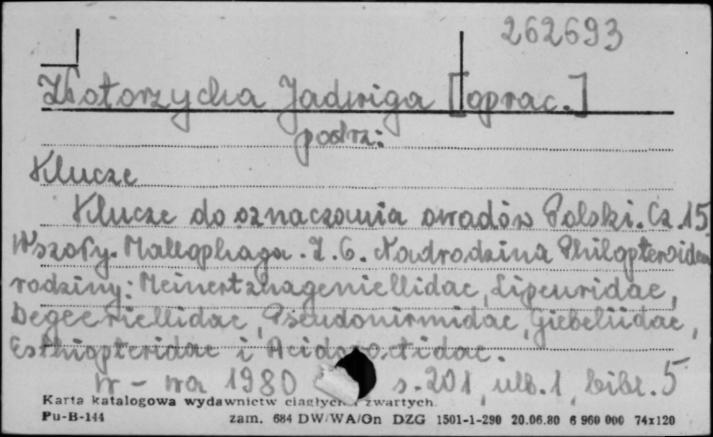 262693
Złotorzycka Jadwiga [oprac.]
podrz:
Klucze
Klucze do oznaczania owadów Polski. Cz. 15
Wszoły. Mallophaga. Z. 6. Nadrodzina Philopteroidea
rodziny: Meinertzhageniellidae, Lipeuridae,
Degeeriellidae, Pseudonirmidae, Giebeliidae,
Esthiopteridae i Acidoproctidae.
W-wa 1980 s. 201, ulb. 1, bibl. 5
Karta katalogowa wydawnictw ciągłych i zwartych.
Pu-B-144 zam. 684 DW/WA/Gn DZG 1501-1-290 20.06.80 6 960 000 74x120